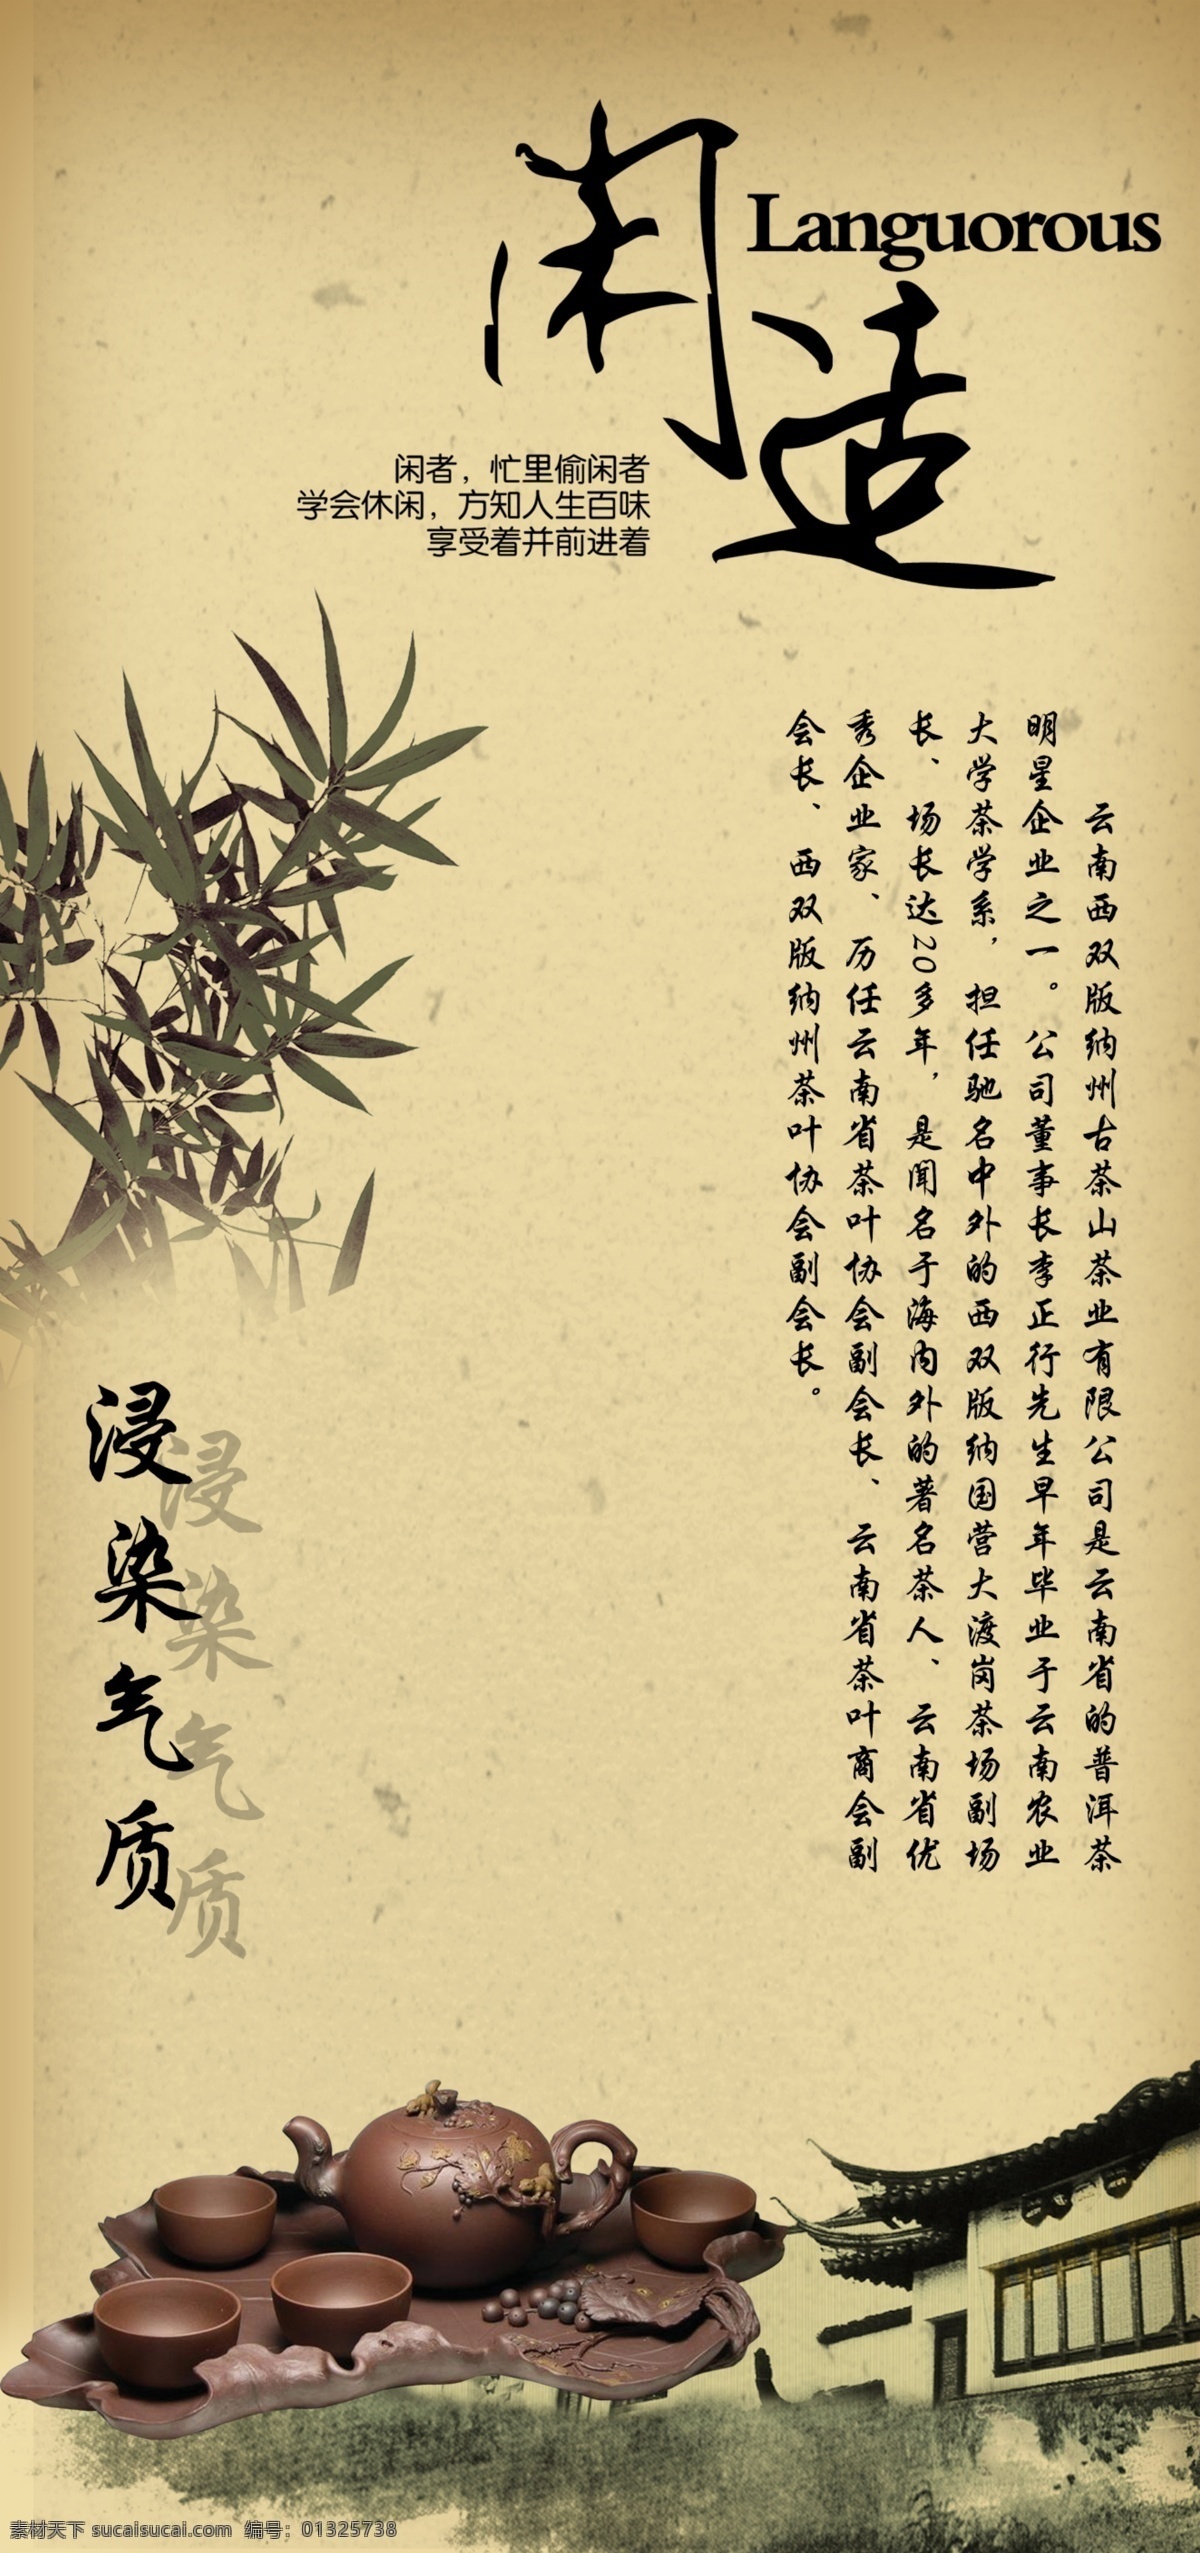 闲适
Languorous
闲者，忙里偷闲者
学会休闲，方知人生百味
享受着并前进着
云南西双版纳州古茶山茶业有限公司是云南省的普洱茶
明星企业之一。公司董事长李正行先生早年毕业于云南农业
大学茶学系，担任驰名中外的西双版纳国营大渡岗茶场副场
长、场长达20多年，是闻名于海内外的著名茶人、云南省优
秀企业家、历任云南省茶叶协会副会长、云南省茶叶商会副
会长、西双版纳州茶叶协会副会长。
浸染气质
浸染气质
素材天下 sucaisucai.com 编号：01325738